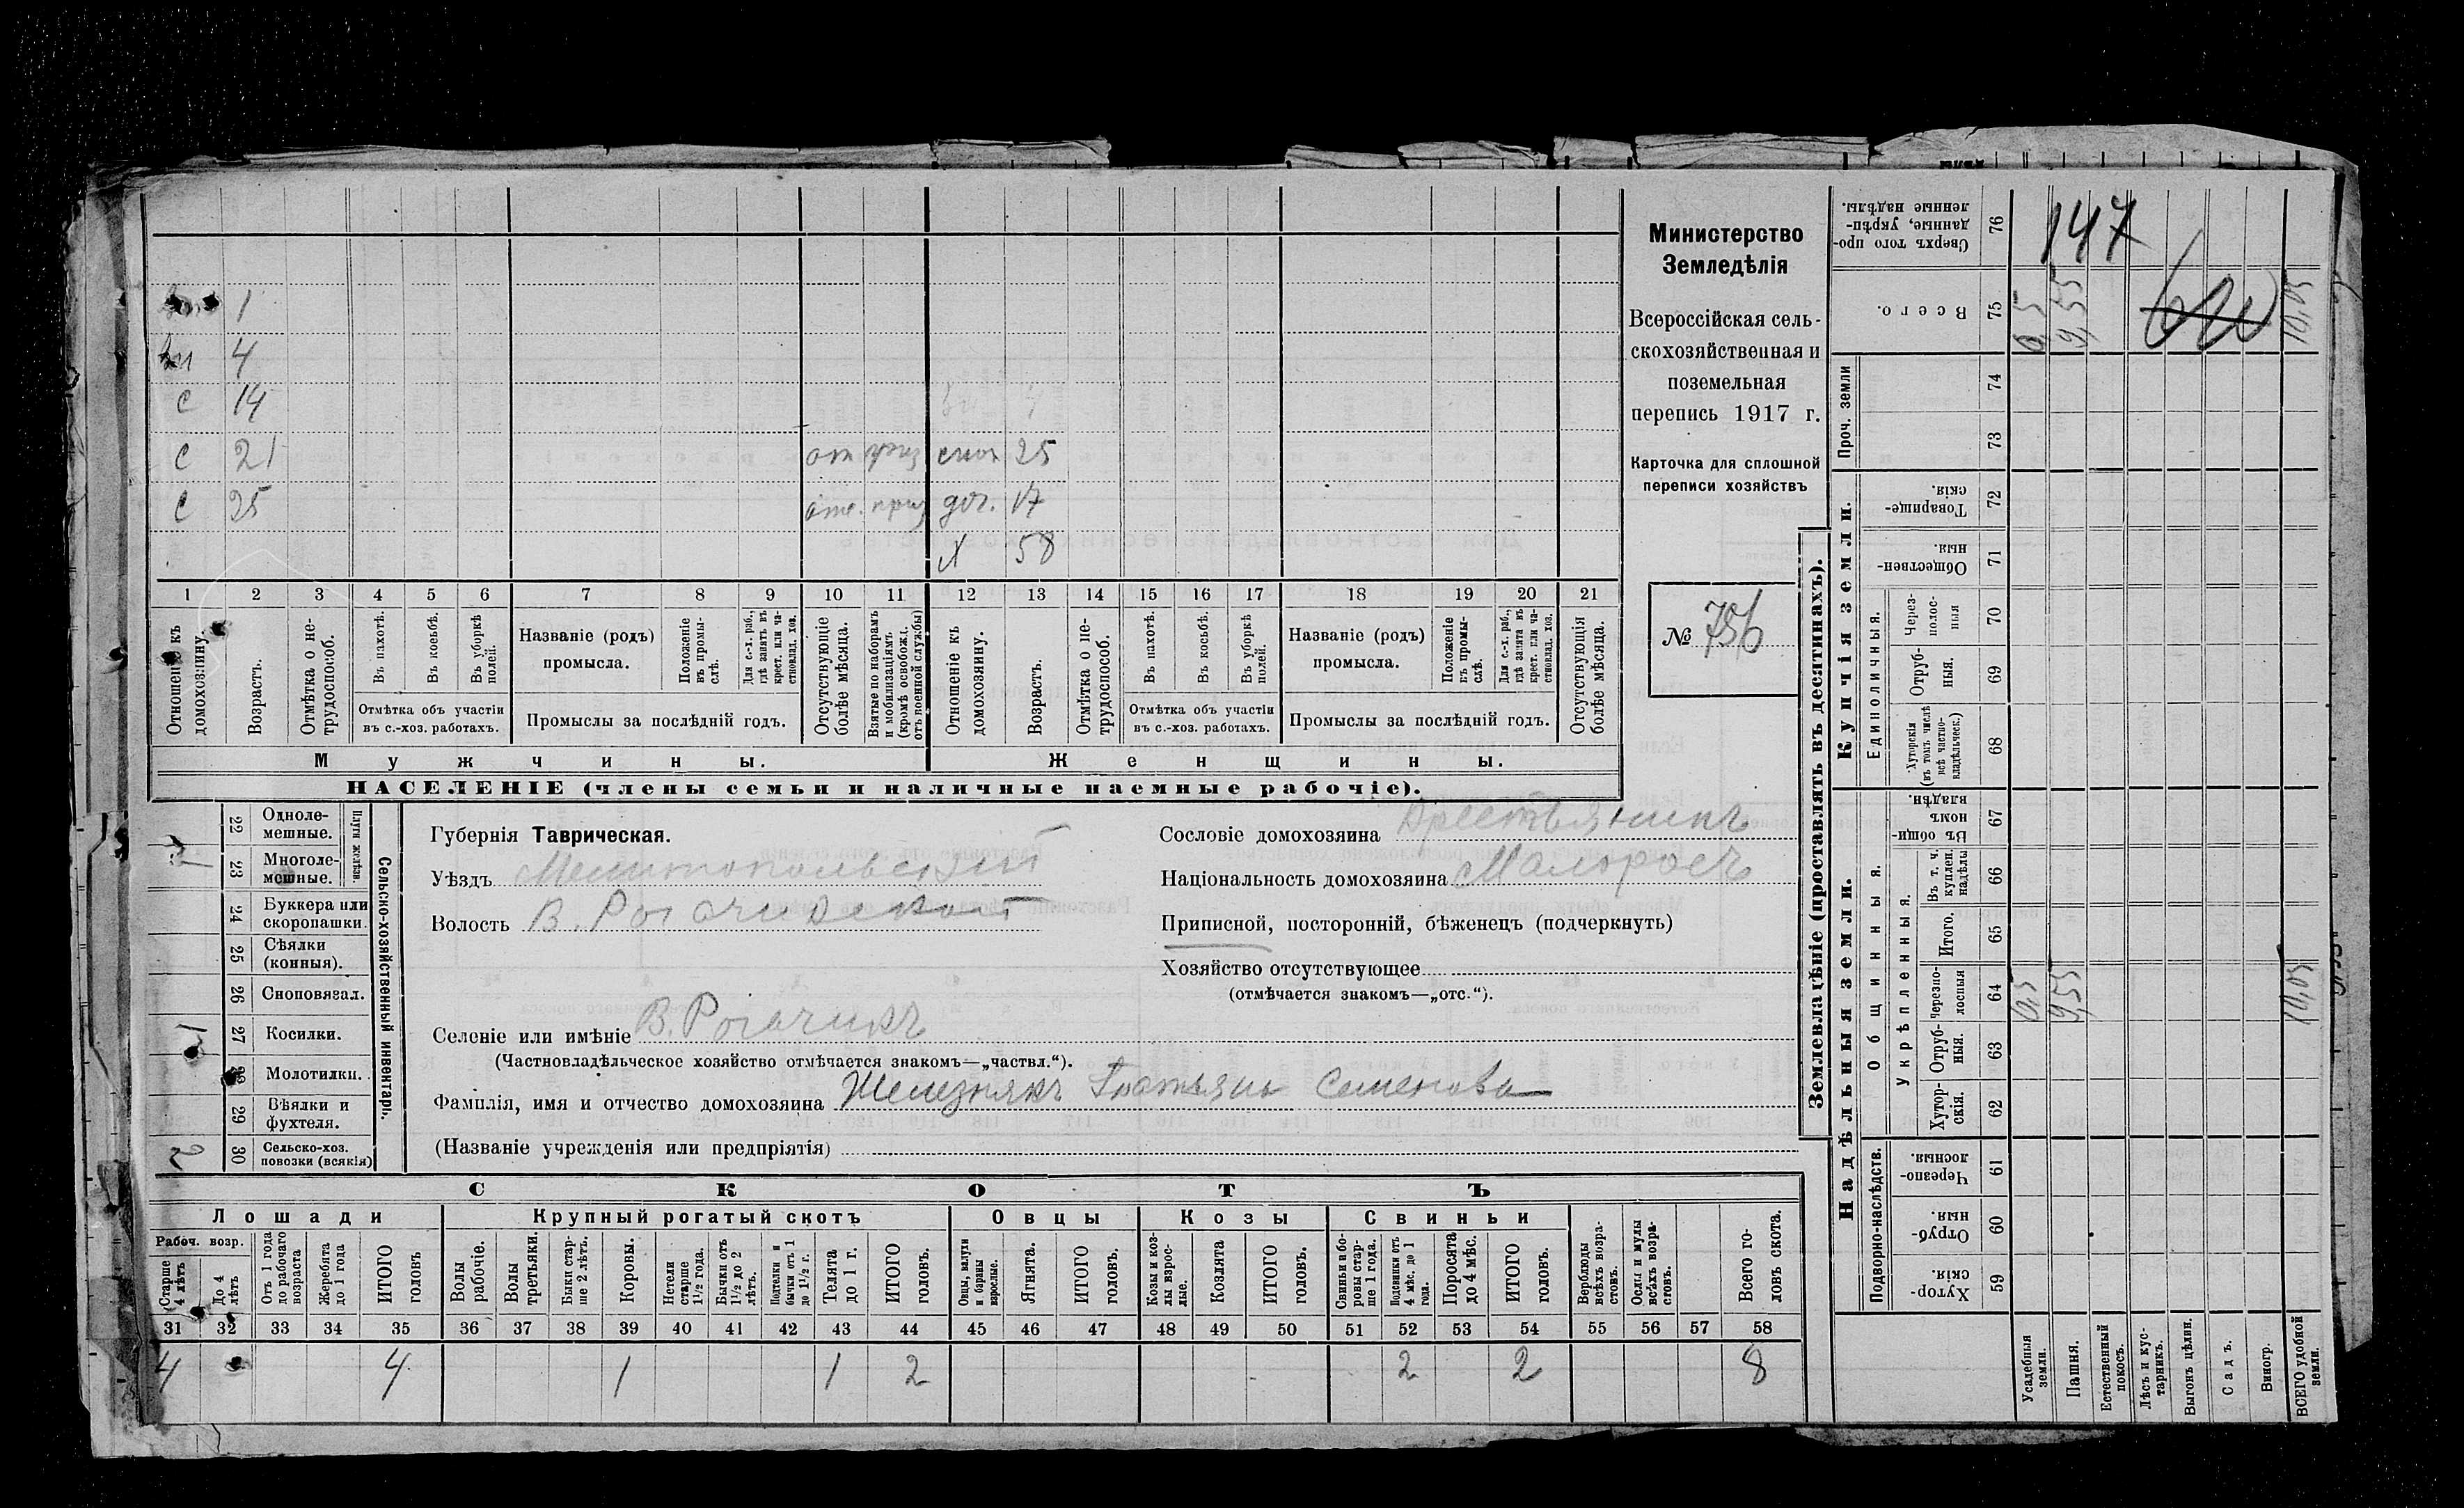 147
внук 1
вн 4
с 14
с 21 от приз снох 25
с 25 отс. приз доч. 17
Х 58
1 2 3 4 5 6 7 8 9 10 11 12 13 14 15 16 17 18 19 20 21
Отношеніе къ домохозяину.
Возрастъ.
Отмѣтка о не-трудоспособ.
Въ пахотѣ.
Въ косьбѣ.
Въ уборкѣ полей.
Отмѣтка объ участіи
въ с.-хоз. работахъ.
Названіе (родъ)
промысла.
Положеніе въ промы-слѣ.
Для с.-х. раб., гдѣ занятъ въ крест. или ча-стновлад. хоз.
Промыслы за послѣдній годъ.
Отсутствующіе болѣе мѣсяца.
Взятые по наборамъ и мобилизаціямъ (кромѣ освобожд. отъ военной службы)
Отношеніе къ домохозяину.
Возрастъ.
Отмѣтка о не-трудоспособ.
Въ пахотѣ.
Въ косьбѣ.
Въ уборкѣ полей.
Отмѣтка объ участіи
въ с.-хоз. работахъ.
Названіе (родъ)
промысла.
Положеніе въ промы-слѣ.
Для с.-х. раб., гдѣ занята въ крест. или ча-стновлад. хоз.
Промыслы за послѣдній годъ.
Отсутствующія болѣе мѣсяца.
Мужчины. Женщины.
НАСЕЛЕНІЕ (члены семьи и наличные наемные рабочіе).
Министерство
Земледѣлія
Всероссійская сель-
скохозяйственная и
поземельная
перепись 1917 г.
Карточка для сплошной
переписи хозяйствъ
№ 756
Сельско-хозяйственный инвентарь.
Плуги желѣзн.
22 Одноле-мешные.
1 23 Многоле-мешные.
24 Буккера или скоропашки.
25 Сѣялки (конныя).
26 Сноповязал.
1 27 Косилки.
28 Молотилки.
29 Вѣялки и фухтеля.
2 30 Сельско-хоз. повозки (всякія)
Губернія Таврическая.
Уѣздъ Мелитопольскій
Волость В. Рогачикской
Селеніе или имѣніе В. Рогачикъ
(Частновладѣльческое хозяйство отмѣчается знакомъ—„частвл.“).
Фамилія, имя и отчество домохозяина Железнякъ Татьяна Семенова
(Названіе учрежденія или предпріятія)
Сословіе домохозяина Крестьянинъ
Національность домохозяина Малоросъ
Приписной, посторонній, бѣженецъ (подчеркнуть)
Хозяйство отсутствующее
(отмѣчается знакомъ—„отс.“).
СКОТЪ
Лошади Крупный рогатый скотъ Овцы Козы Свиньи
Рабоч. возр.
Старше 4 лѣтъ
До 4 лѣтъ
Отъ 1 года до рабочаго возраста
Жеребята до 1 года
ИТОГО головъ
Волы рабочіе.
Волы третьяки.
Быки стар-ше 2 лѣтъ.
Коровы.
Нетели старше 1½ года.
Бычки отъ 1½ до 2 лѣтъ.
Подтелки и бычки отъ 1 до 1½ г.
Телята до 1 г.
ИТОГО головъ.
Овцы, валухи и бараны взрослые.
Ягнята.
ИТОГО головъ.
Козы и коз-лы взрос-лые.
Козлята
ИТОГО головъ.
Свиньи и бо-ровы стар-ше 1 года.
Подсвинки отъ 4 мѣс. до 1 года.
Поросята до 4 мѣс.
ИТОГО головъ.
Верблюды всѣхъ возра-стовъ.
Ослы и мулы всѣхъ возра-стовъ.
Всего го-ловъ скота.
31 32 33 34 35 36 37 38 39 40 41 42 43 44 45 46 47 48 49 50 51 52 53 54 55 56 57 58
4 4 1 1 2 2 2 8
Землевладѣніе (проставлять въ десятинахъ).
Сверхъ того про-данные, укрѣп-ленные надѣлы. 76
Всего. 75 0,5 9,55 10,05
Проч. земли
74
73
Купчія земли.
Товарище-скія. 72
Обществен-ныя. 71
Единоличныя.
Через-полос-ныя 70
Отруб-ныя. 69
Хуторскія (въ томъ числѣ всѣ частно-владѣльческ.) 68
Надѣльныя земли.
Общинныя.
Въ общи-номъ владѣн. 67
Укрѣпленныя.
Въ т. ч. куплен. надѣлы 66
Итого. 65
Черезпо-лосныя 64 0,5 9,55 10,05
Отруб-ныя. 63
Хутор-скія. 62
Подворно-наслѣдств.
Черезпо-лосныя. 61
Отруб-ныя. 60
Хутор-скія. 59
Усадебныя земли.
Пашня.
Естественный покосъ.
Лѣсъ и кус-тарникъ.
Выгонъ цѣлин.
Садъ.
Виногр.
ВСЕГО удобной земли.